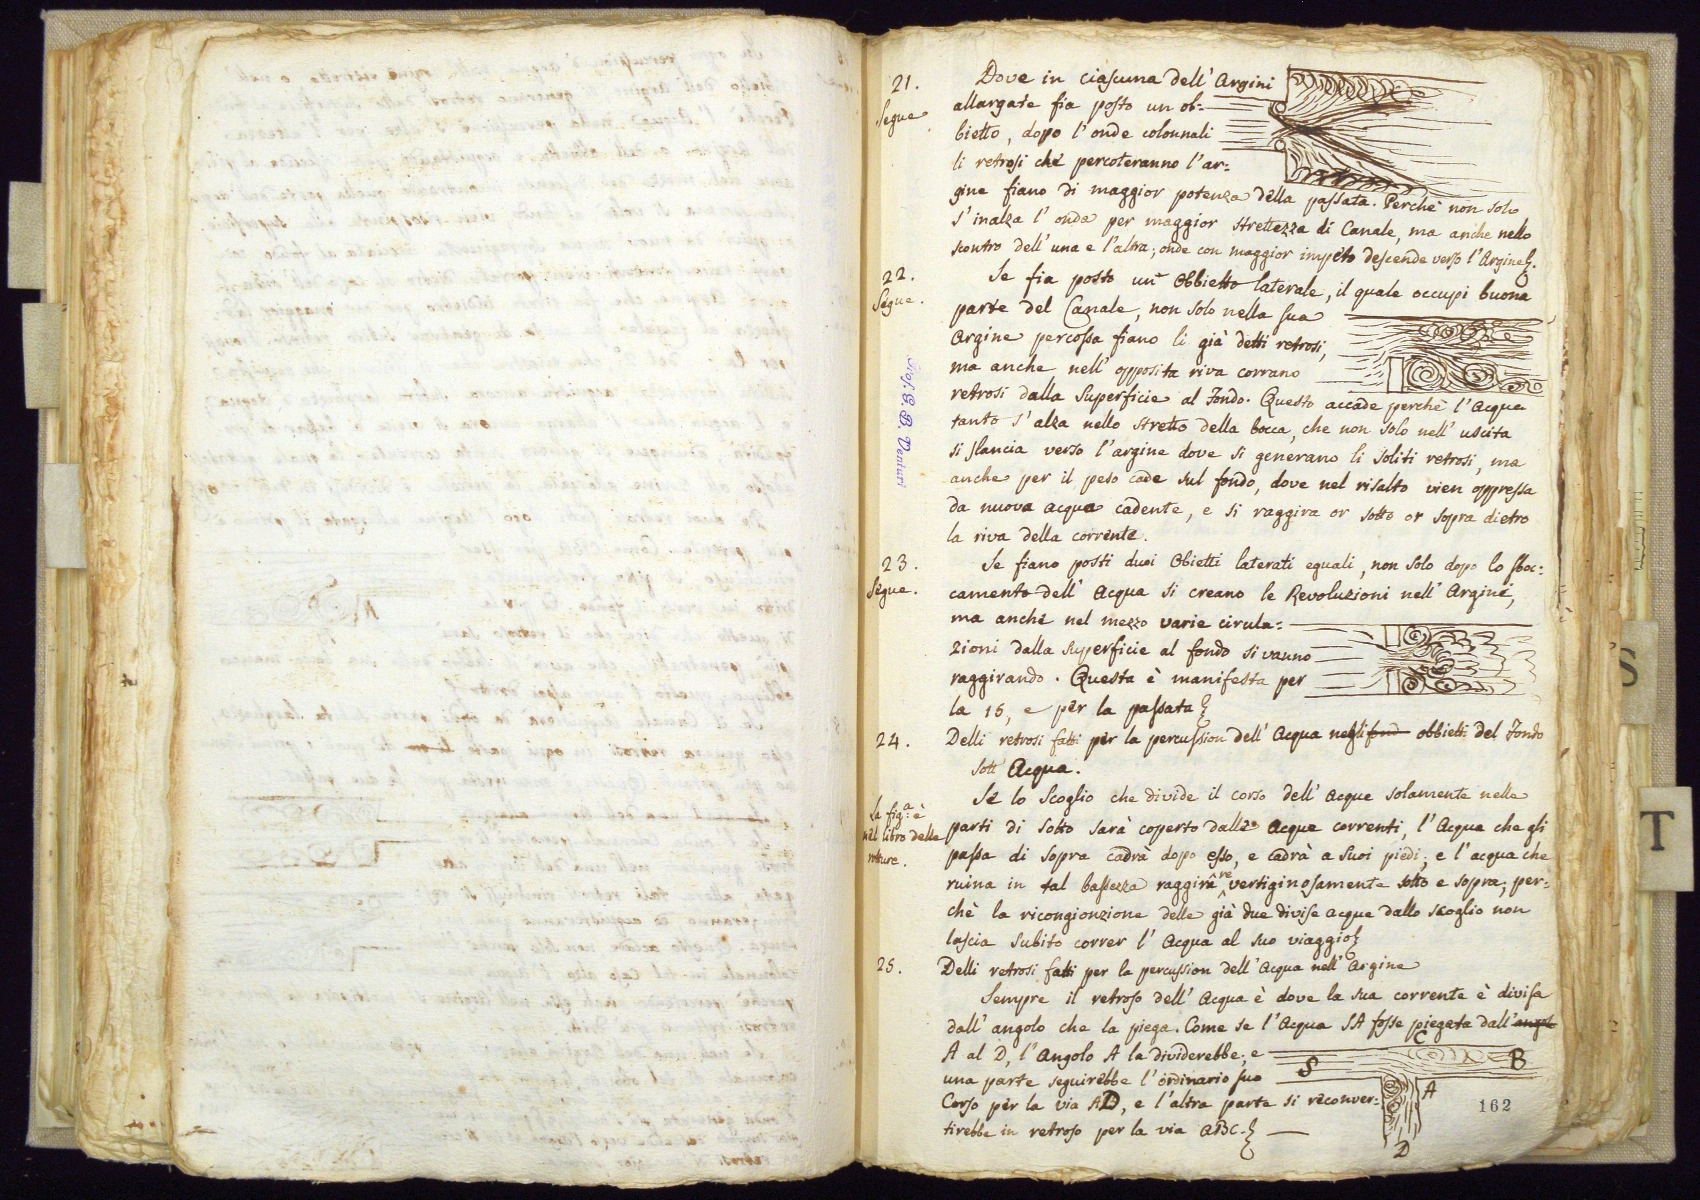 21.
Segue
Dove in ciascuna dell' Argini
allargate fia posto un ob-
bietto, dopo l'onde colonnali
li retrosi che percoteranno l'ar-
gine fiano di maggior potenza della passata. Perchè non solo
s'inalza l'onda per maggior strettezza di Canale, ma anche nello
scontro dell'una e l'altra; onde con maggior impèto descende verso l'Argine.
22.
Segue.
Se fia posto un Obbietto laterale, il quale occupi buona
parte del Canale, non solo nella sua
Argine percossa fiano li già detti retrosi,
ma anche nell'opposita riva corrano
retrosi dalla Superficie al Fondo. Questo accade perchè l'Acqua
tanto s'alza nello stretto della bocca, che non solo nell'uscita
si slancia verso l'argine dove si generano li soliti retrosi, ma
anche per il peso cade sul fondo, dove nel risalto vien oppressa
da nuova acqua cadente, e si raggira or sotto or sopra dietro
la riva della corrente.
Prof. G. B. Venturi
23.
Segue.
Se fiano posti duoi Obietti laterati eguali, non solo dopo lo sboc-
camento dell'Acqua si creano le Revoluzioni nell'Argine,
ma anche nel mezzo varie cirula-
zioni dalla superficie al fondo si vanno
raggirando. Questa è manifesta per
la 15, e per la passata
24.
Delli retrosi fatti per la percussion dell'Acqua negli fond obbietti del Fondo
sott'Acqua.
La fig.a è
nel libro delle
rotture.
Se lo Scoglio che divide il corso dell'Acque solamente nelle
parti di sotto sarà coperto dalle Acque correnti, l'Acqua che gli
passa di sopra cadrà dopo esso, e cadrà a suoi piedi; e l'acqua che
ruina in tal bassezza raggirare vertiginosamente sotto e sopra; per-
chè la ricongionzione delle già due divise acque dallo scoglio non
lascia subito correr l'Acqua al suo viaggio
25.
Delli retrosi fatti per la percussion dell'Acqua nell'Argine
Sempre il retroso dell'Acqua è dove la sua corrente è divisa
dall'angolo che la piega. Come se l'Acqua SA fosse piegata dall'angol
A al D, l'Angolo A la dividerebbe; e
una parte seguirebbe l'ordinario suo
Corso per la via AD, e l'altra parte si reconver-
tirebbe in retroso per la via ABC.
S
C
B
A
D
162
S
T